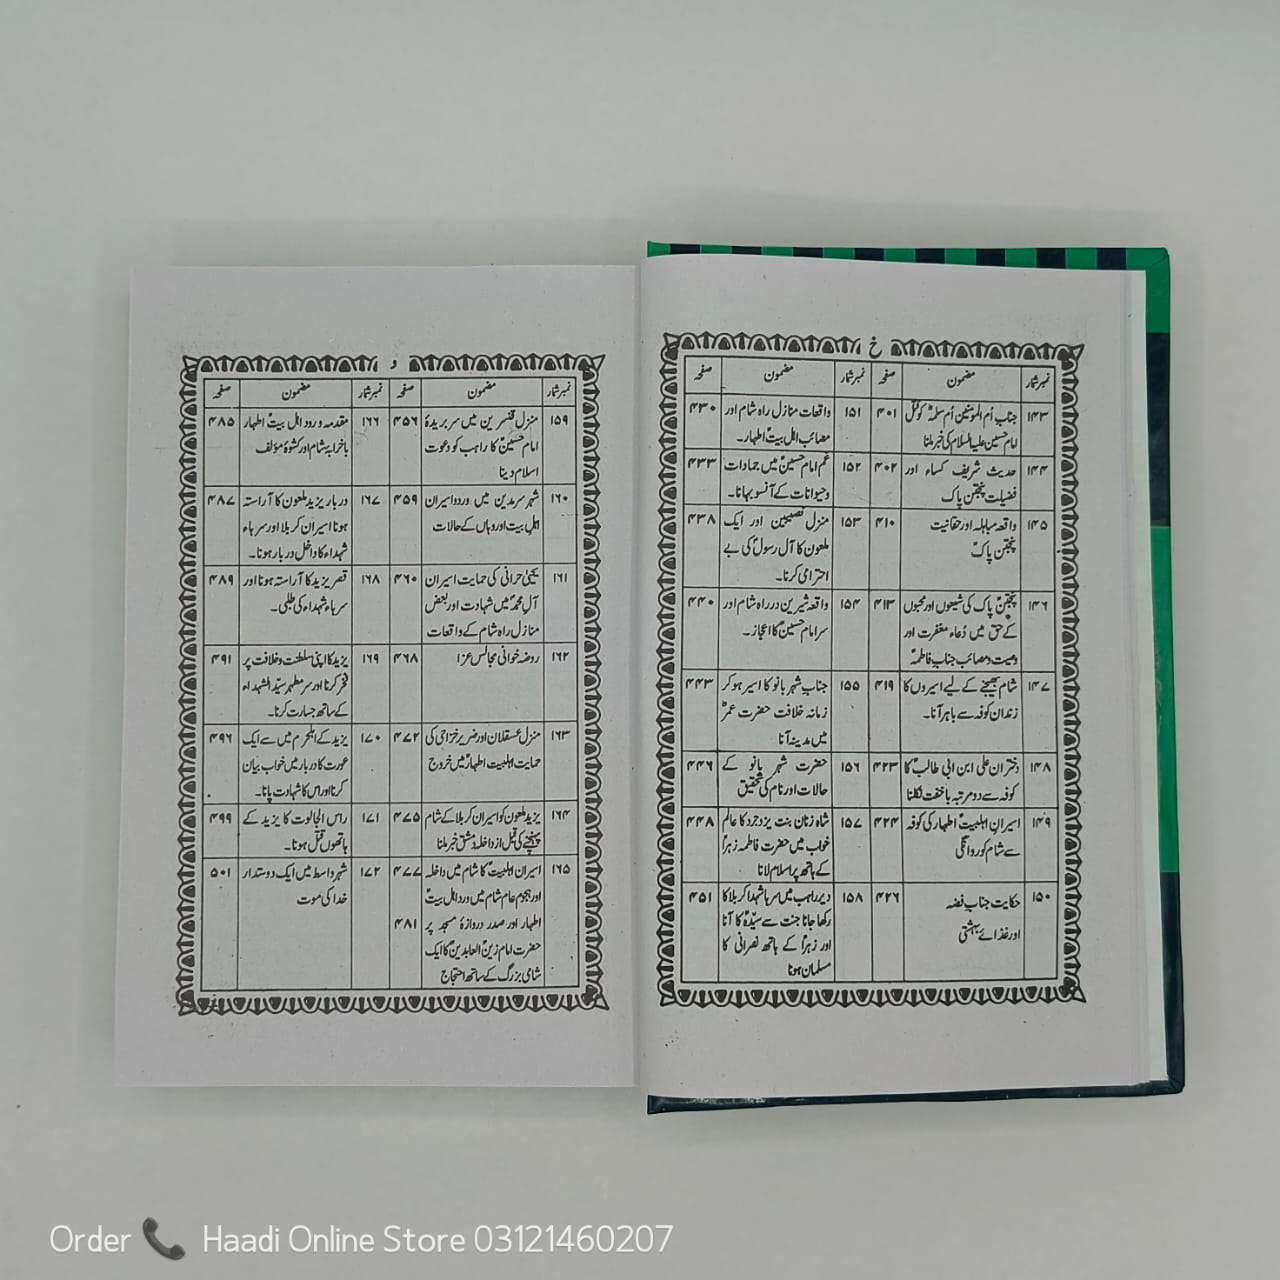 خ
نمبر شمار مضمون صفحہ نمبر شمار مضمون صفحہ
۱۴۳ جناب اُم المومنین اُم سلمہؓ کو قتل ۴۰۱
امام حسین علیہ السلام کی خبر ملنا
۱۴۴ حدیث شریف کساء اور ۴۰۲
فضیلت پنجتن پاک
۱۴۵ واقعہ مباہلہ اور حقانیت ۴۱۰
پنجتن پاکؑ
۱۴۶ پنجتنؑ پاک کی شیعوں اور محبوں ۴۱۳
کے حق میں دُعاء مغفرت اور
وصیت و مصائب جناب فاطمہؑ
۱۴۷ شام بھیجنے کے لیے اسیروں کا ۴۱۹
زندان کوفہ سے باہر آنا۔
۱۴۸ دختران علی ابن ابی طالبؑ کا ۴۲۳
کوفہ سے دو مرتبہ باخفت نکلنا
۱۴۹ اسیران اہلبیتؑ اطہار کی کوفہ ۴۲۴
سے شام کو روانگی
۱۵۰ حکایت جناب فضہ ۴۲۶
اور غذائے بہشتی
۱۵۱ واقعات منازل راہ شام اور ۴۳۰
مصائب اہل بیتؑ اطہار۔
۱۵۲ غم امام حسینؑ میں جمادات ۴۳۳
و حیوانات کے آنسو بہانا۔
۱۵۳ منزل نصیبین اور ایک ۴۳۸
ملعون کا آل رسولؐ کی بے
احترامی کرنا۔
۱۵۴ واقعہ شیریں در راہ شام اور ۴۴۰
سر امام حسینؑ کا اعجاز۔
۱۵۵ جناب شہر بانو کا اسیر ہو کر ۴۴۳
زمانہ خلافت حضرت عمرؓ
میں مدینہ آنا
۱۵۶ حضرت شہر بانو کے ۴۴۶
حالات اور نام کی تحقیق
۱۵۷ شاہ زنان بنت یزدجرد کا عالم ۴۴۸
خواب میں حضرت فاطمہ زہراؑ
کے ہاتھ پر اسلام لانا
۱۵۸ دیر راہب میں سرہا شہدا کربلا کا ۴۵۱
رکھا جانا جنت سے سیّدہؑ کا آنا
اور زہراؑ کے ہاتھ نصرانی کا
مسلمان ہونا
د
نمبر شمار مضمون صفحہ نمبر شمار مضمون صفحہ
۱۵۹ منزل قنسرین میں سر بریدۂ ۴۵۶
امام حسینؑ کا راہب کو دعوت
اسلام دینا
۱۶۰ شہر سرمدین میں ورود اسیران ۴۵۹
اہل بیت اور وہاں کے حالات
۱۶۱ یحییٰ حرانی کی حمایت اسیران ۴۶۰
آل محمدؐ میں شہادت اور بعض
منازل راہ شام کے واقعات
۱۶۲ روضہ خوانی مجالس عزا ۴۶۸
۱۶۳ منزل عسقلان اور ضریر خزاعی کی ۴۷۲
حمایت اہلبیت اطہارؑ میں خروج
۱۶۴ یزید ملعون کو اسیران کربلا کے شام ۴۷۵
پہنچنے کی قبل از داخلہ دمشق خبر ملنا
۱۶۵ اسیران اہلبیتؑ کا شام میں داخلہ ۴۷۷
اور ہجوم عام شام میں درد اہل بیتؑ
اطہار اور صدر دروازۂ مسجد پر ۴۸۱
حضرت امام زین العابدینؑ کا ایک
شامی بزرگ کے ساتھ احتجاج
۱۶۶ مقدمہ ورود اہل بیتؑ اطہار ۴۸۵
باخرابہ شام اور کشوۂ مؤلف
۱۶۷ دربار یزید ملعون کا آراستہ ۴۸۷
ہونا اسیران کربلا اور سرہاء
شہداء کا داخل دربار ہونا۔
۱۶۸ قصر یزید کا آراستہ ہونا اور ۴۸۹
سرہاء شہداء کی طلبی۔
۱۶۹ یزید کا اپنی سلطنت و خلافت پر ۴۹۱
فخر کرنا اور سر مطہر سیّد الشہداء
کے ساتھ جسارت کرنا۔
۱۷۰ یزید کے اہلحرم میں سے ایک ۴۹۶
عورت کا دربار میں خواب بیان
کرنا اور اس کا شہادت پانا۔
۱۷۱ راس الجالوت کا یزید کے ۴۹۹
ہاتھوں قتل ہونا۔
۱۷۲ شہر واسط میں ایک دوستدار ۵۰۱
خدا کی موت
Order Haadi Online Store 03121460207